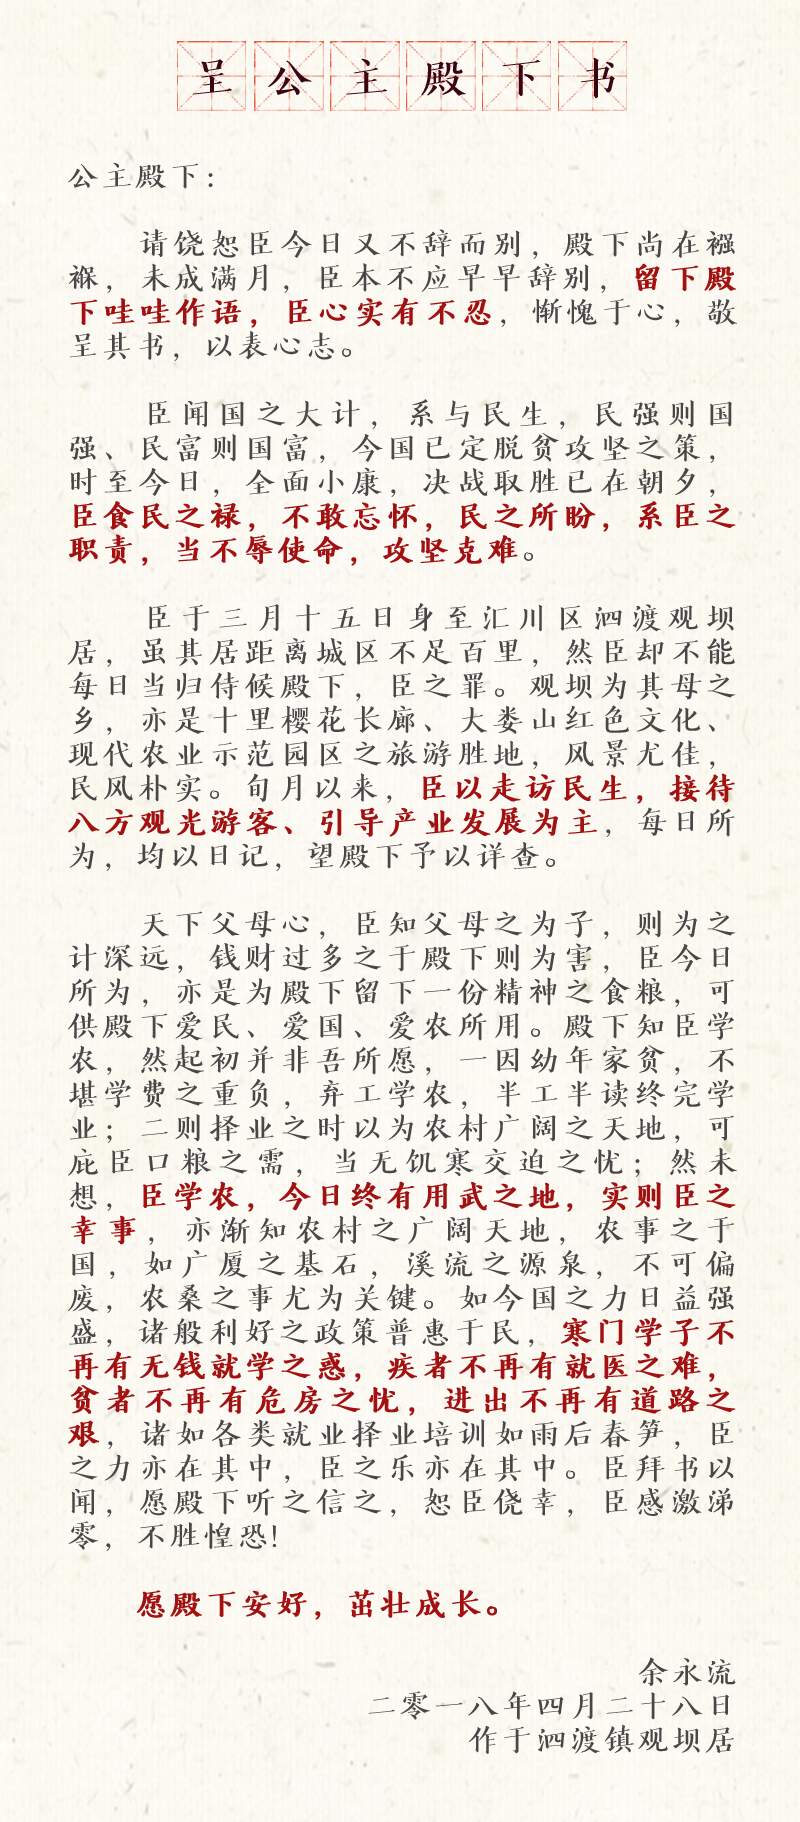 呈公主殿下书
公主殿下：
请饶恕臣今日又不辞而别，殿下尚在襁
褓，未成满月，臣本不应早早辞别，留下殿
下哇哇作语，臣心实有不忍，惭愧于心，敬
呈其书，以表心志。
臣闻国之大计，系与民生，民强则国
强、民富则国富，今国已定脱贫攻坚之策，
时至今日，全面小康，决战取胜已在朝夕，
臣食民之禄，不敢忘怀，民之所盼，系臣之
职责，当不辱使命，攻坚克难。
臣于三月十五日身至汇川区泗渡观坝
居，虽其居距离城区不足百里，然臣却不能
每日当归侍候殿下，臣之罪。观坝为其母之
乡，亦是十里樱花长廊、大娄山红色文化、
现代农业示范园区之旅游胜地，风景尤佳，
民风朴实。旬月以来，臣以走访民生，接待
八方观光游客、引导产业发展为主，每日所
为，均以日记，望殿下予以详查。
天下父母心，臣知父母之为子，则为之
计深远，钱财过多之于殿下则为害，臣今日
所为，亦是为殿下留下一份精神之食粮，可
供殿下爱民、爱国、爱农所用。殿下知臣学
农，然起初并非吾所愿，一因幼年家贫，不
堪学费之重负，弃工学农，半工半读终完学
业；二则择业之时以为农村广阔之天地，可
庇臣口粮之需，当无饥寒交迫之忧；然未
想，臣学农，今日终有用武之地，实则臣之
幸事，亦渐知农村之广阔天地，农事之于
国，如广厦之基石，溪流之源泉，不可偏
废，农桑之事尤为关键。如今国之力日益强
盛，诸般利好之政策普惠于民，寒门学子不
再有无钱就学之惑，疾者不再有就医之难，
贫者不再有危房之忧，进出不再有道路之
艰，诸如各类就业择业培训如雨后春笋，臣
之力亦在其中，臣之乐亦在其中。臣拜书以
闻，愿殿下听之信之，恕臣侥幸，臣感激涕
零，不胜惶恐！
愿殿下安好，茁壮成长。
余永流
二零一八年四月二十八日
作于泗渡镇观坝居